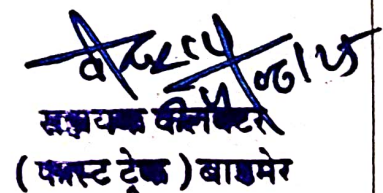 सहायक कलेक्टर
( फास्ट ट्रेक ) बाडमेर